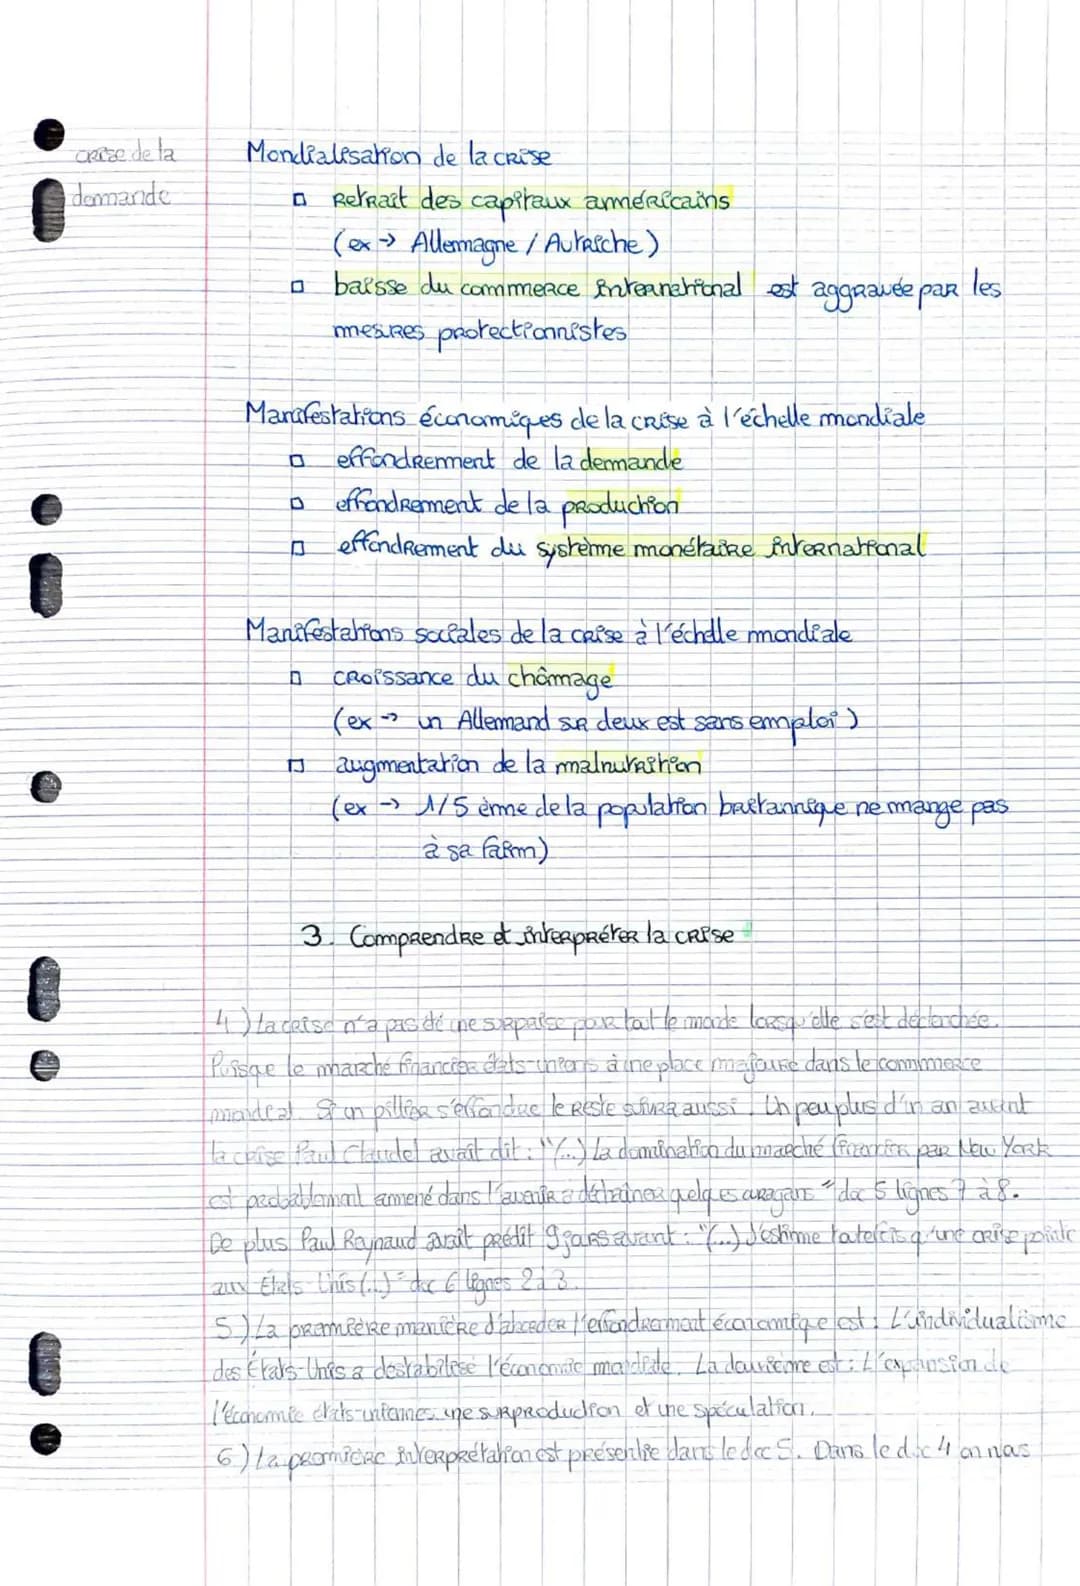 crise de la
demande
Mondialisation de la crise
Retrait des capitaux américains
(ex → Allemagne / Autriche)
baisse du commerce international est aggravée par les
mesures protectionnistes
Manifestations économiques de la crise à l'échelle mondiale
effondrement de la demande
effondrement de la production
effondrement du système monétaire international
Manifestations sociales de la crise à l'échelle mondiale
croissance du chômage
(ex → un Allemand sur deux est sans emploi)
augmentation de la malnutrition
(ex → 1/5 ème de la population britannique ne mange pas
à sa faim)
3. Comprendre et interpréter la crise
4) La crise n'a pas été une surprise pour tout le monde lorsqu'elle s'est déclenchée.
Puisque le marché financier états-uniens à une place majeure dans le commerce
mondial. Si un pillier s'effondre le reste suivra aussi. Un peu plus d'un an avant
la crise Paul Claudel avait dit : "(...) La domination du marché financier par New York
est probablement amené dans l'avenir a déchainer quelques ouragans" doc 5 lignes 7 à 8.
De plus Paul Reynaud avait prédit 9 jours avant : "(...) J'estime toutefois qu'une crise pointe
aux Etats-Unis (...)" doc 6 lignes 2 à 3.
5) La première manière d'aborder l'effondrement économique est : L'individualisme
des États-Unis a déstabilisé l'économie mondiale. La deuxième est : L'expansion de
l'économie états-unienne, une surproduction et une spéculation.
6) La première interprétation est présentée dans le doc 5. Dans le doc 4 on nous